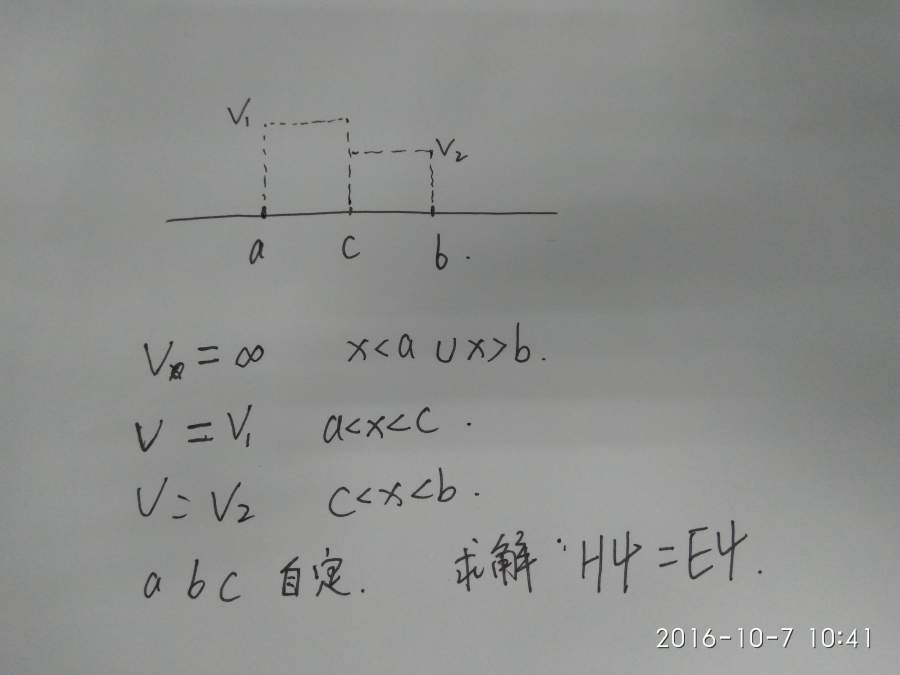 V₁
V₂
a c b.
V = ∞ x<a ∪ x>b.
V = V₁ a<x<c.
V = V₂ c<x<b.
a b c 自定. 求解: Hψ = Eψ.
2016-10-7 10:41